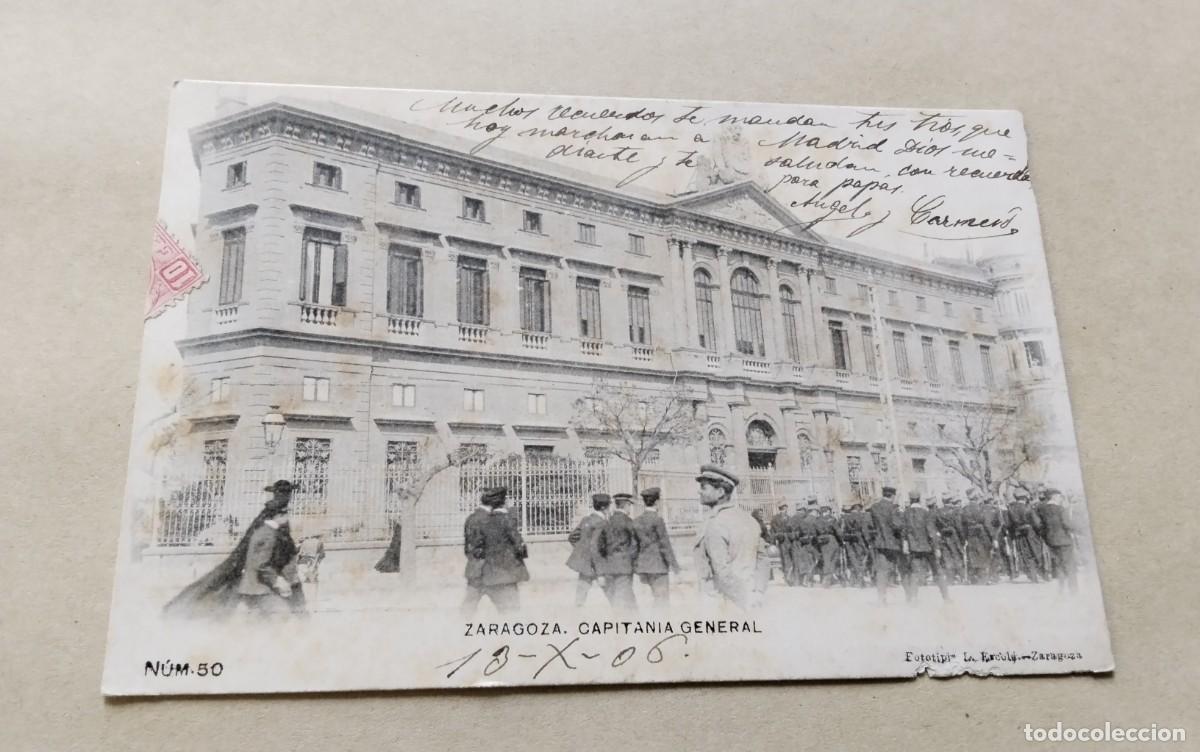 Muchos recuerdos te mandan tus tios, que
hoy marcharan a Madrid Dios me-
diante y te saludan, con recuerdos
para papas.
Angel y Carmen
10
ZARAGOZA. CAPITANIA GENERAL
NÚM. 50
13-X-06.
Fototipª L. Escolá.-Zaragoza
todocoleccion